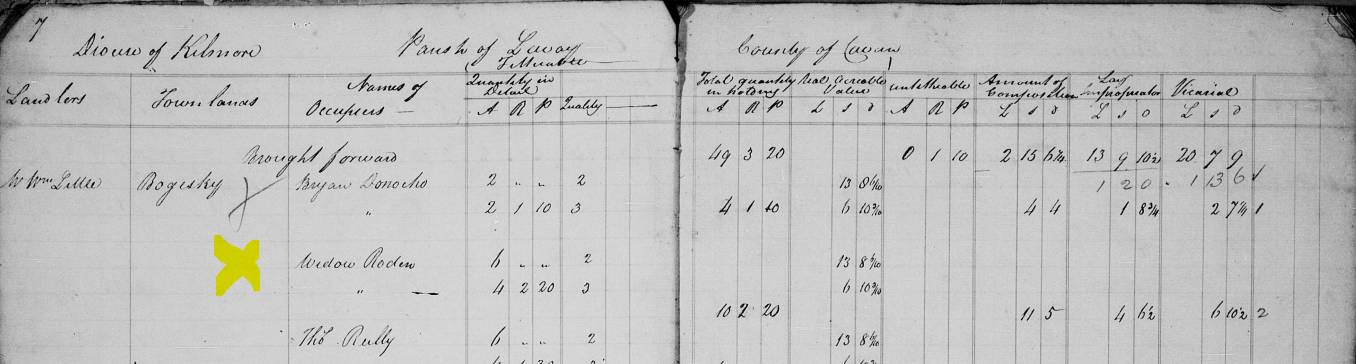 7
Diocese of Kilmore Parish of Lavay County of Cavan
Titheable
Landlors Townlands Names of Occupiers Quantity in Detail A R P Quality Total quantity in holding A R P Real Acreable Value L s d untitheable A R P Amount of Composition L s d Lay Impropriator L s d Vicarial L s d
Brought forward 49 3 20 0 1 10 2 15 13 9 10½ 20 7 9
Wm Little Bogesky Bryan Donocho 2 " " 2 13 8 6/10 1 2 0 1 13 6
" 2 1 10 3 4 1 10 6 4 4 1 8¾ 2 1
Widow Roden 6 " " 2 13 8 6/10
" 4 2 20 3 6
10 2 20 11 5 4 6½ 6 10½ 2
Thos Reilly 6 " " 2 13 8 6/10